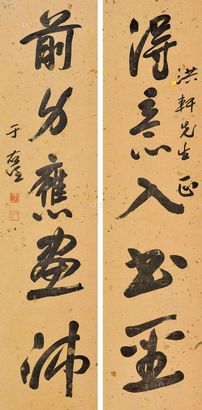 得意入書聖
洪軒先生正
前身應畫師
于右任